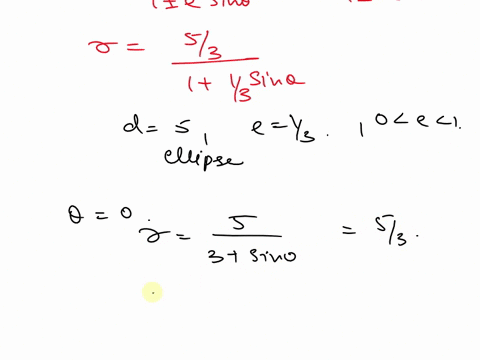 1 ± e sinθ
r = 5/3 / 1 + 1/3 sinθ
d = 5, e = 1/3. , 0 < e < 1.
ellipse
θ = 0. r = 5 / 3 + sin0 = 5/3.